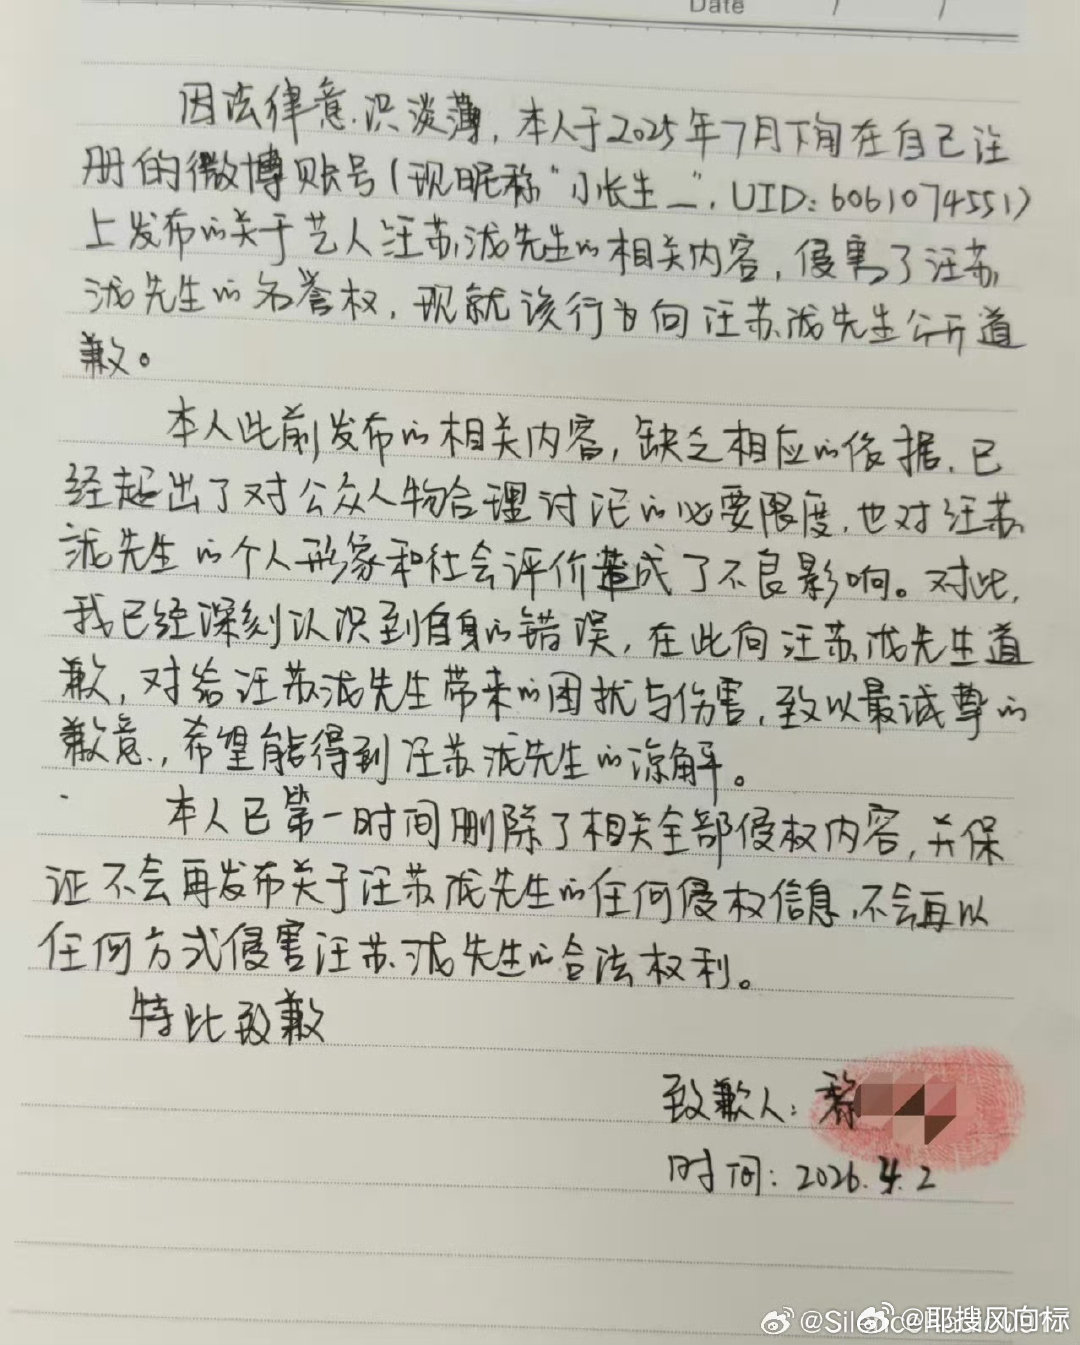 Date / /
因法律意识淡薄，本人于2025年7月下旬在自己注
册的微博账号（现昵称“小长生_”，UID：6061074551）
上发布的关于艺人汪苏泷先生的相关内容，侵害了汪苏
泷先生的名誉权，现就该行为向汪苏泷先生公开道
歉。
本人此前发布的相关内容，缺乏相应的依据，已
经超出了对公众人物合理讨论的必要限度，也对汪苏
泷先生的个人形象和社会评价造成了不良影响。对此，
我已经深刻认识到自身的错误，在此向汪苏泷先生道
歉，对给汪苏泷先生带来的困扰与伤害，致以最诚挚的
歉意，希望能得到汪苏泷先生的谅解。
本人已第一时间删除了相关全部侵权内容，并保
证不会再发布关于汪苏泷先生的任何侵权信息，不会再以
任何方式侵害汪苏泷先生的合法权利。
特此致歉
致歉人：
时间：2026.4.2
@耶搜风向标